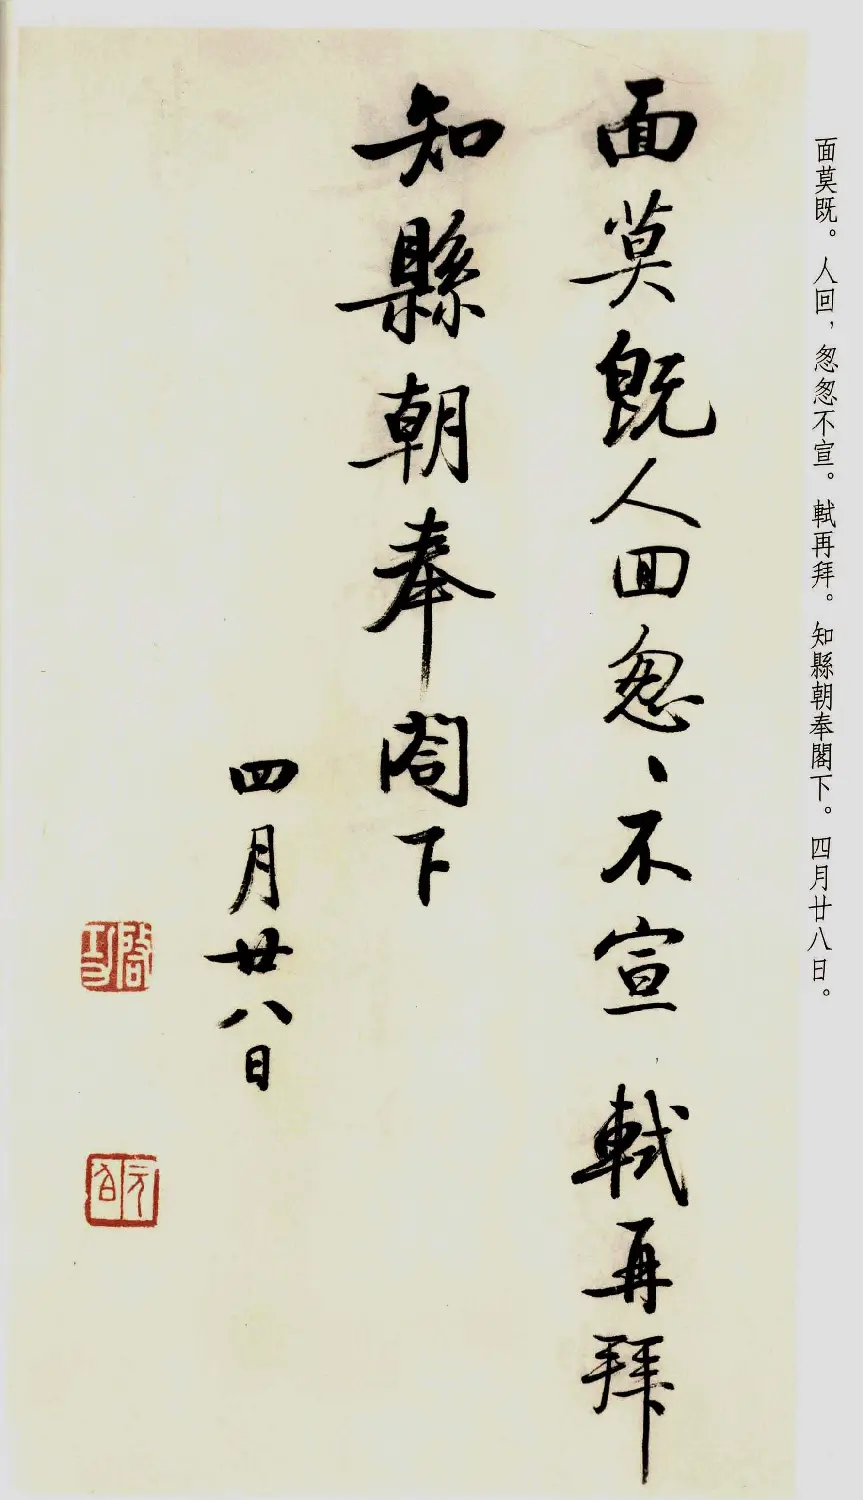 面莫既。人回，怱怱不宣。軾再拜。知縣朝奉閣下。四月廿八日。
面莫既人回怱、不宣軾再拜
知縣朝奉閣下
四月廿八日